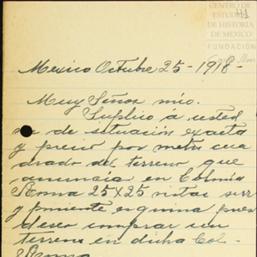 CENTRO DE
ESTUDIOS
DE HISTORIA
DE MEXICO
FUNDACIÓN
Mexico Octubre 25-1918-
Muy Señor mio.
Suplico á usted
de situación exacta
y precio por metro cua
drado del terreno que
anuncia en Colonia
Roma 25X25 vistas sur
y poniente esquina pues
deseo comprar un
terreno en dicha Col-
Roma